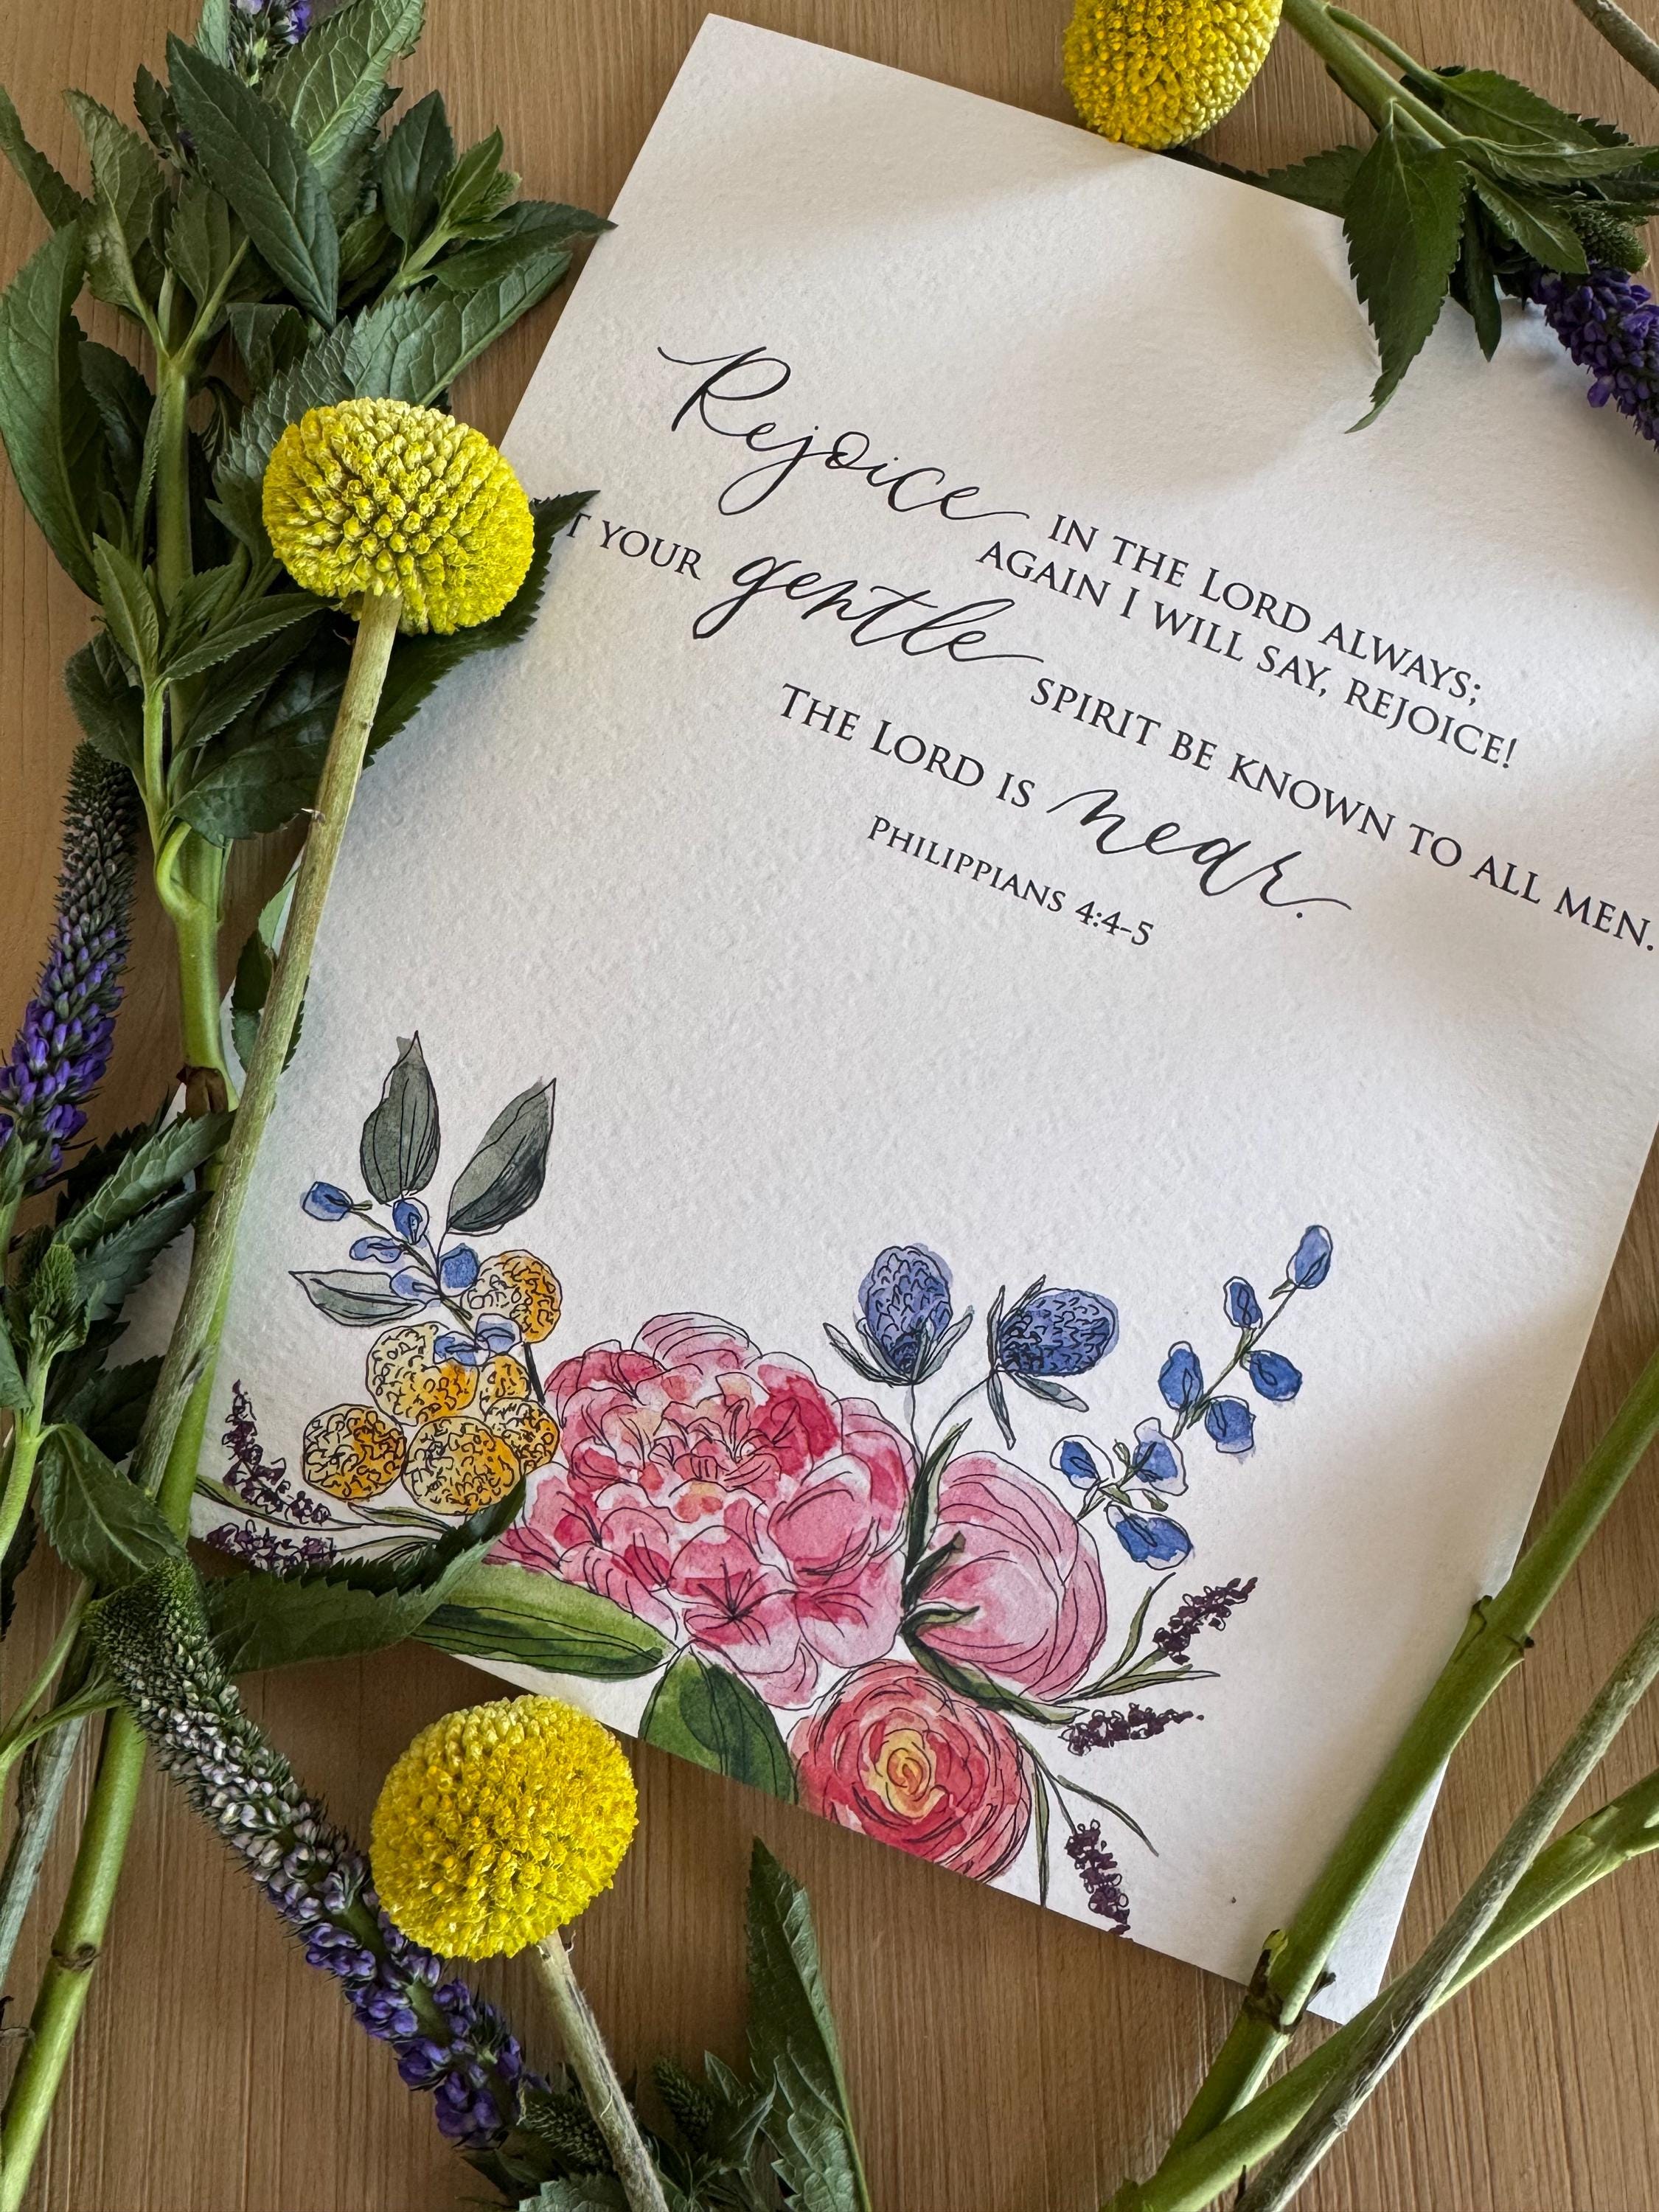 Rejoice IN THE LORD ALWAYS;
AGAIN I WILL SAY, REJOICE!
T YOUR gentle SPIRIT BE KNOWN TO ALL MEN.
THE LORD IS near.
PHILIPPIANS 4:4-5